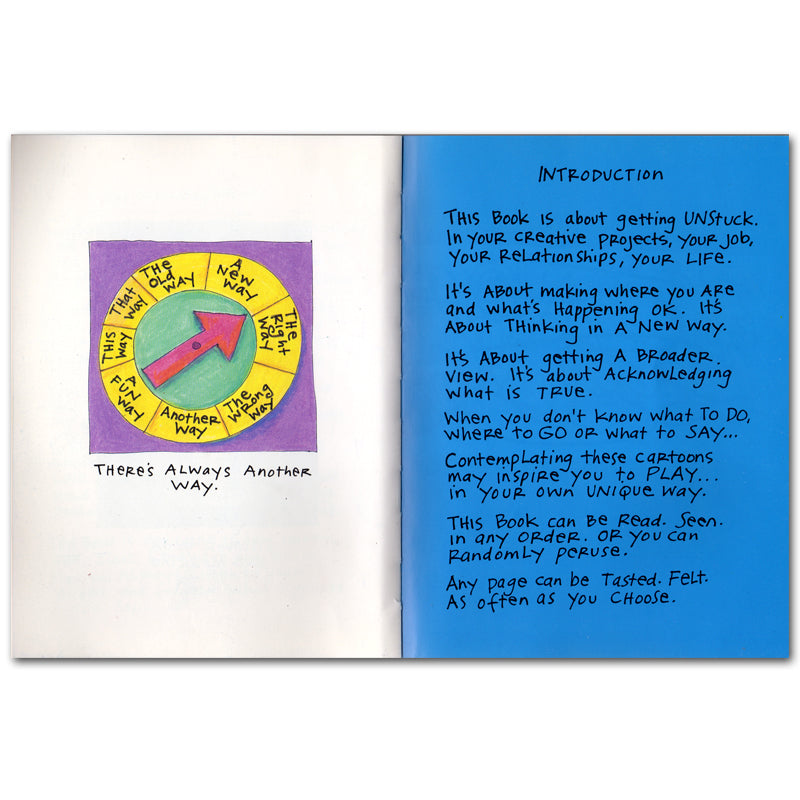 THE
OLD
WAY
A
NEW
WAY
THE
Right
WAY
The
WRONG
WAY
Another
WAY
A
FUN
WAY
THIS
WAY
That
WAY
THERE'S ALWAYS ANOTHER
WAY.
INTRODUCTION
THIS BOOK IS about getting UNStuck.
In YOUR CREATIVE PROJECTS, YOUR JOB,
YOUR RELATIONSHIPS, YOUR LIFE.
It's ABOUT making WHERE YOU ARE
and what's HAPPENING OK. It's
ABOUT THINKING IN A NEW WAY.
It's ABOUT getting A BROADER
VIEW. It's about Acknowledging
what is TRUE.
When you don't know what TO DO,
WHERE to GO OR what to SAY...
Contemplating these cartoons
may inspire you to PLAY...
in YOUR OWN UNIQUE WAY.
THIS BOOK can BE READ. SEEN.
in any ORDER. OR YOU can
RANDOMLY PERUSE.
Any page can be TASTED. FELT.
AS often as YOU CHOOSE.